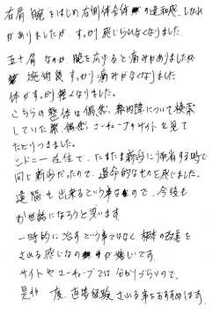 右肩 腕をはじめ右側体全体の違和感、しびれ
がありましたが すっかり感じられなくなりました
五十肩なのか 腕を右げると痛みがありましたが
施術後 すっかり痛みがなくなりました
体がすっかり軽くなりました。
こちらの整体は偶然、について検索
していた際 偶然 ユーチューブやサイトを見て
たどりつきました。
シドニー在住で、たまたま新宿に帰省する時で
同じ新宿だったので、運命的なものを感じました。
遠隔も出来るという事なので、今後も
お世話になろうと思います
一時的に治すという事ではなく 根本の改善を
される感じなのが嬉しいです。
サイトやユーチューブでは分かりづらいので、
是非 一度、直接経験される事をおすすめします。